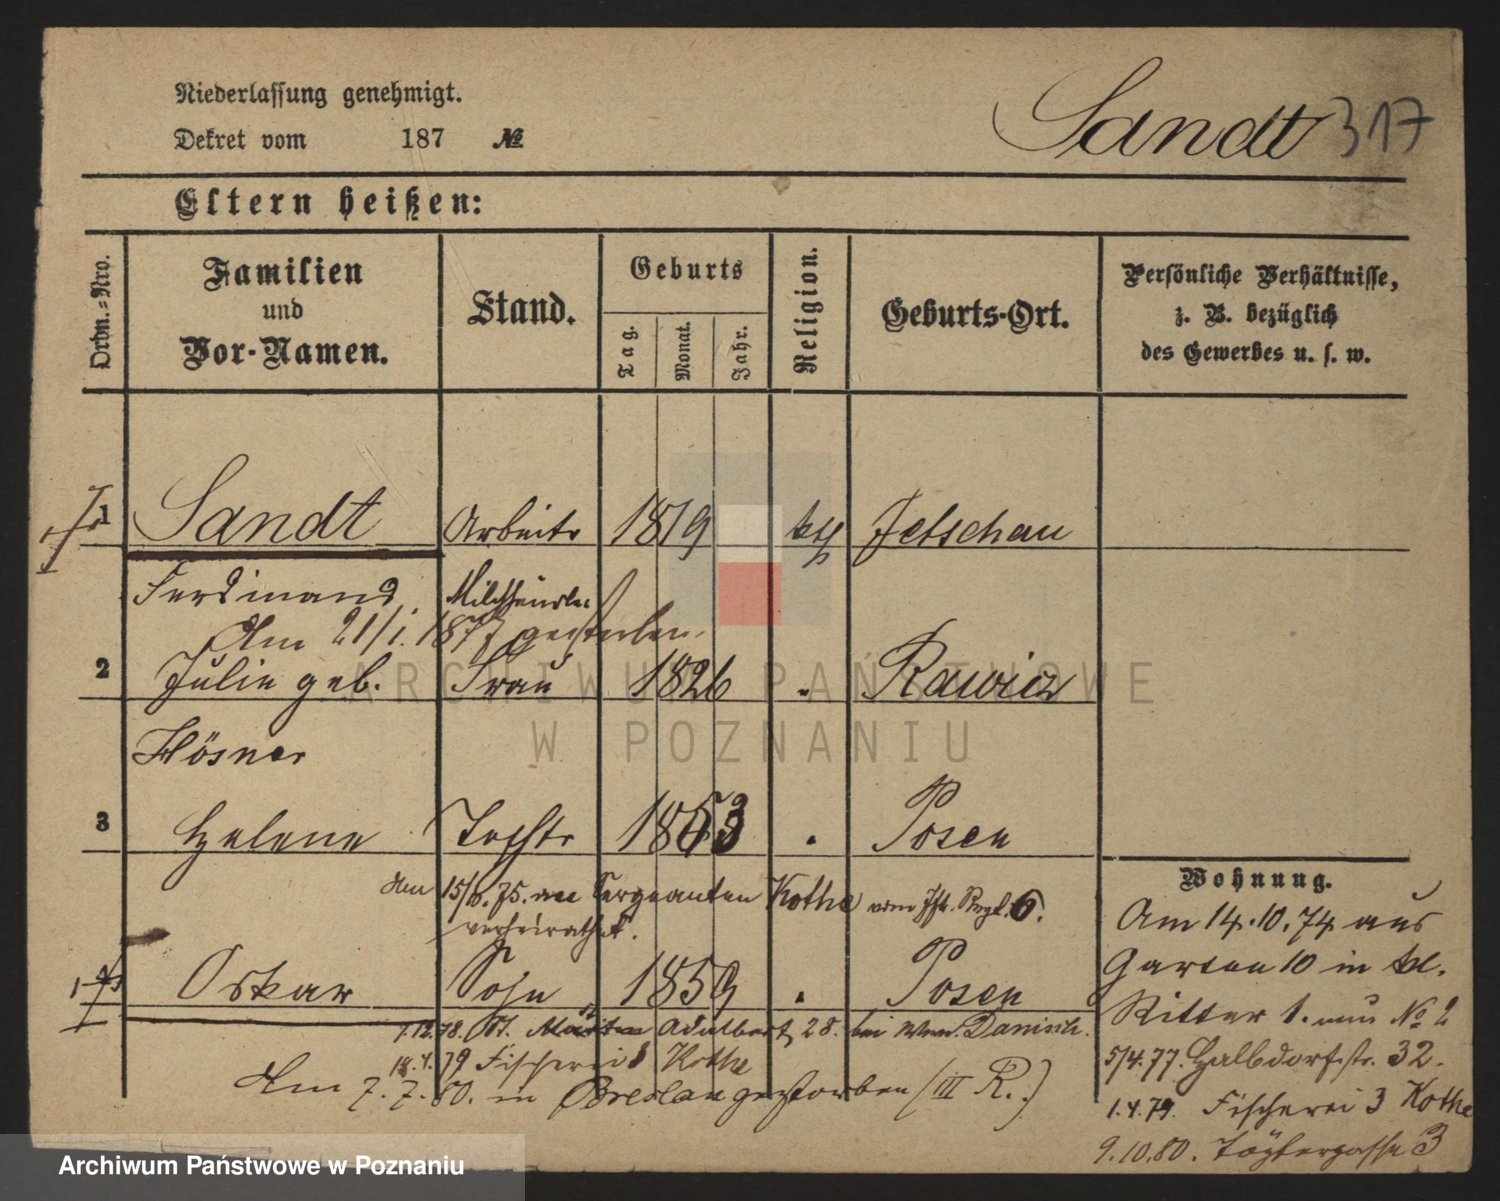 Niederlassung genehmigt.
Dekret vom 187 №
Sandt 317
Eltern heißen:
Ordn.-Nro.
Familien
und
Vor-Namen.
Stand.
Geburts
Tag.
Monat.
Jahr.
Religion.
Geburts-Ort.
Persönliche Verhältnisse,
z. B. bezüglich
des Gewerbes u. s. w.
1 Sandt Arbeiter 1819 kth Jetschau
Ferdinand
Am 21/1. 1877 gestorben.
2 Julie geb. Frau 1826 Rawicz
Hösner
3 Helene Tochter 1853 Posen
Am 15/ 75. Sergeanten Kothe vom Inf. Regt. 6.
verheirathet.
Oskar Sohn 1859 Posen
1.12.78. St. Adalbert 28. bei Danisch.
18.4.79 Fischerei 3 Kothe
Am 7.7.80. in Breslau gestorben (III R.)
Wohnung.
Am 14.10.74 aus
Garten 10 in kl.
Ritter 1. neu No 2
5/4.77. Halbdorfstr. 32.
1.4.79. Fischerei 3 Kothe
9.10.80. Töpfergasse 3
ARCHIWUM PAŃSTWOWE
W POZNANIU
Archiwum Państwowe w Poznaniu